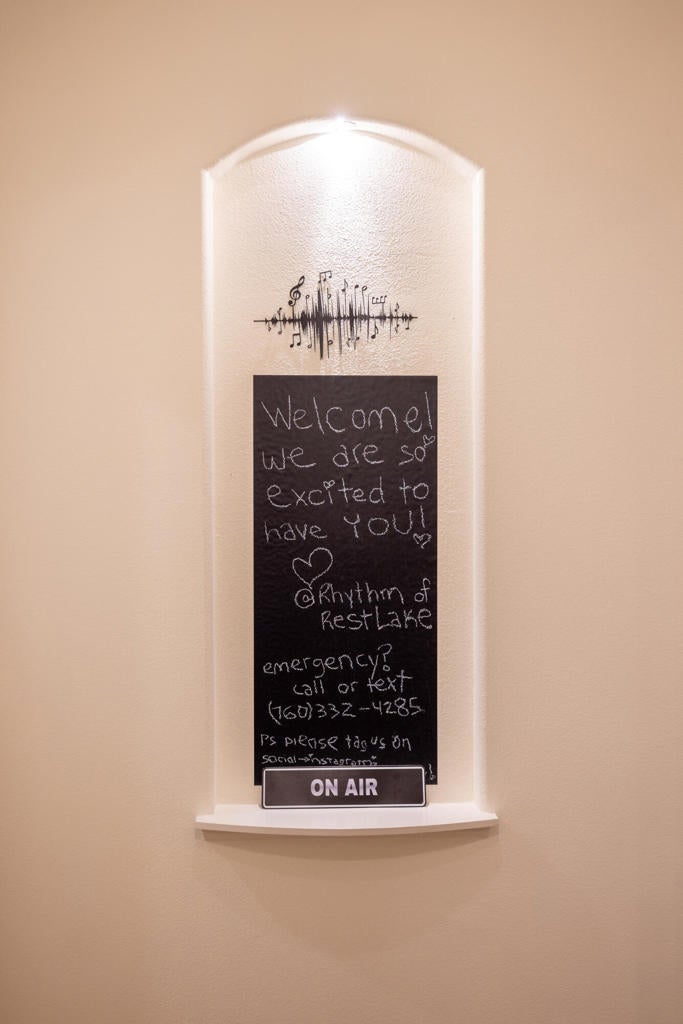 Welcome!
we are so
excited to
have YOU!
@Rhythm of
RestLake
emergency?
call or text
(760)332-4285
Ps please tag us on
social→instagram
ON AIR